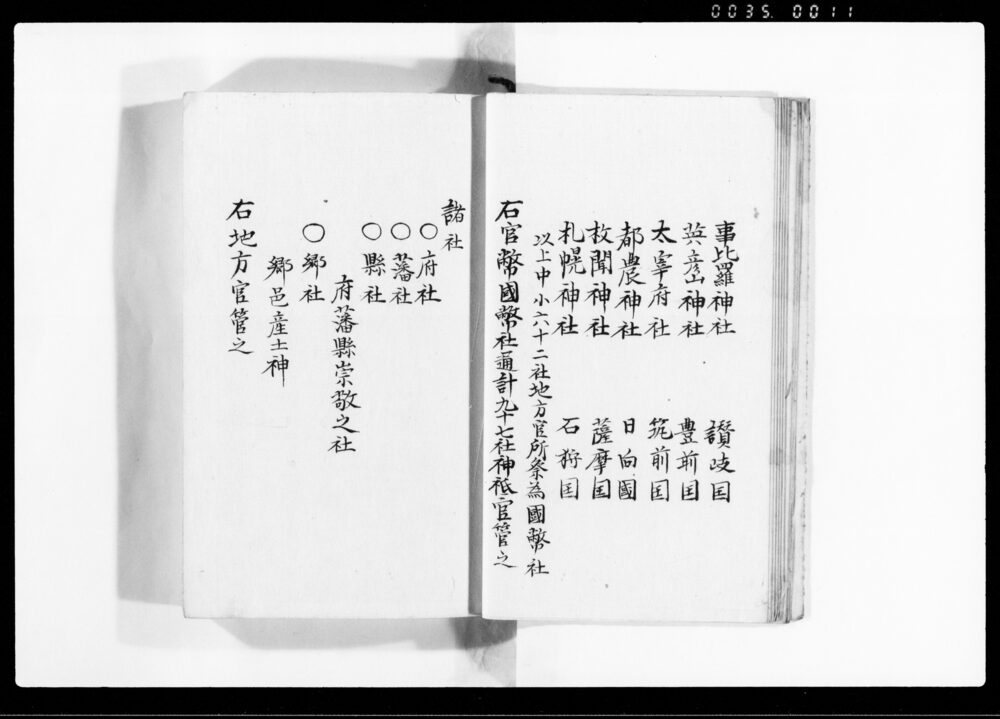 0035. 0011
事比羅神社 讃岐国
英彦山神社 豊前国
太宰府社 筑前国
都農神社 日向國
枚聞神社 薩摩国
札幌神社 石狩国
以上中小六十二社地方官所祭為國幣社
右官幣國幣社通計九十七社神祗官管之
諸社
〇府社
〇藩社
〇縣社
府藩縣崇敬之社
〇郷社
郷邑産土神
右地方官管之